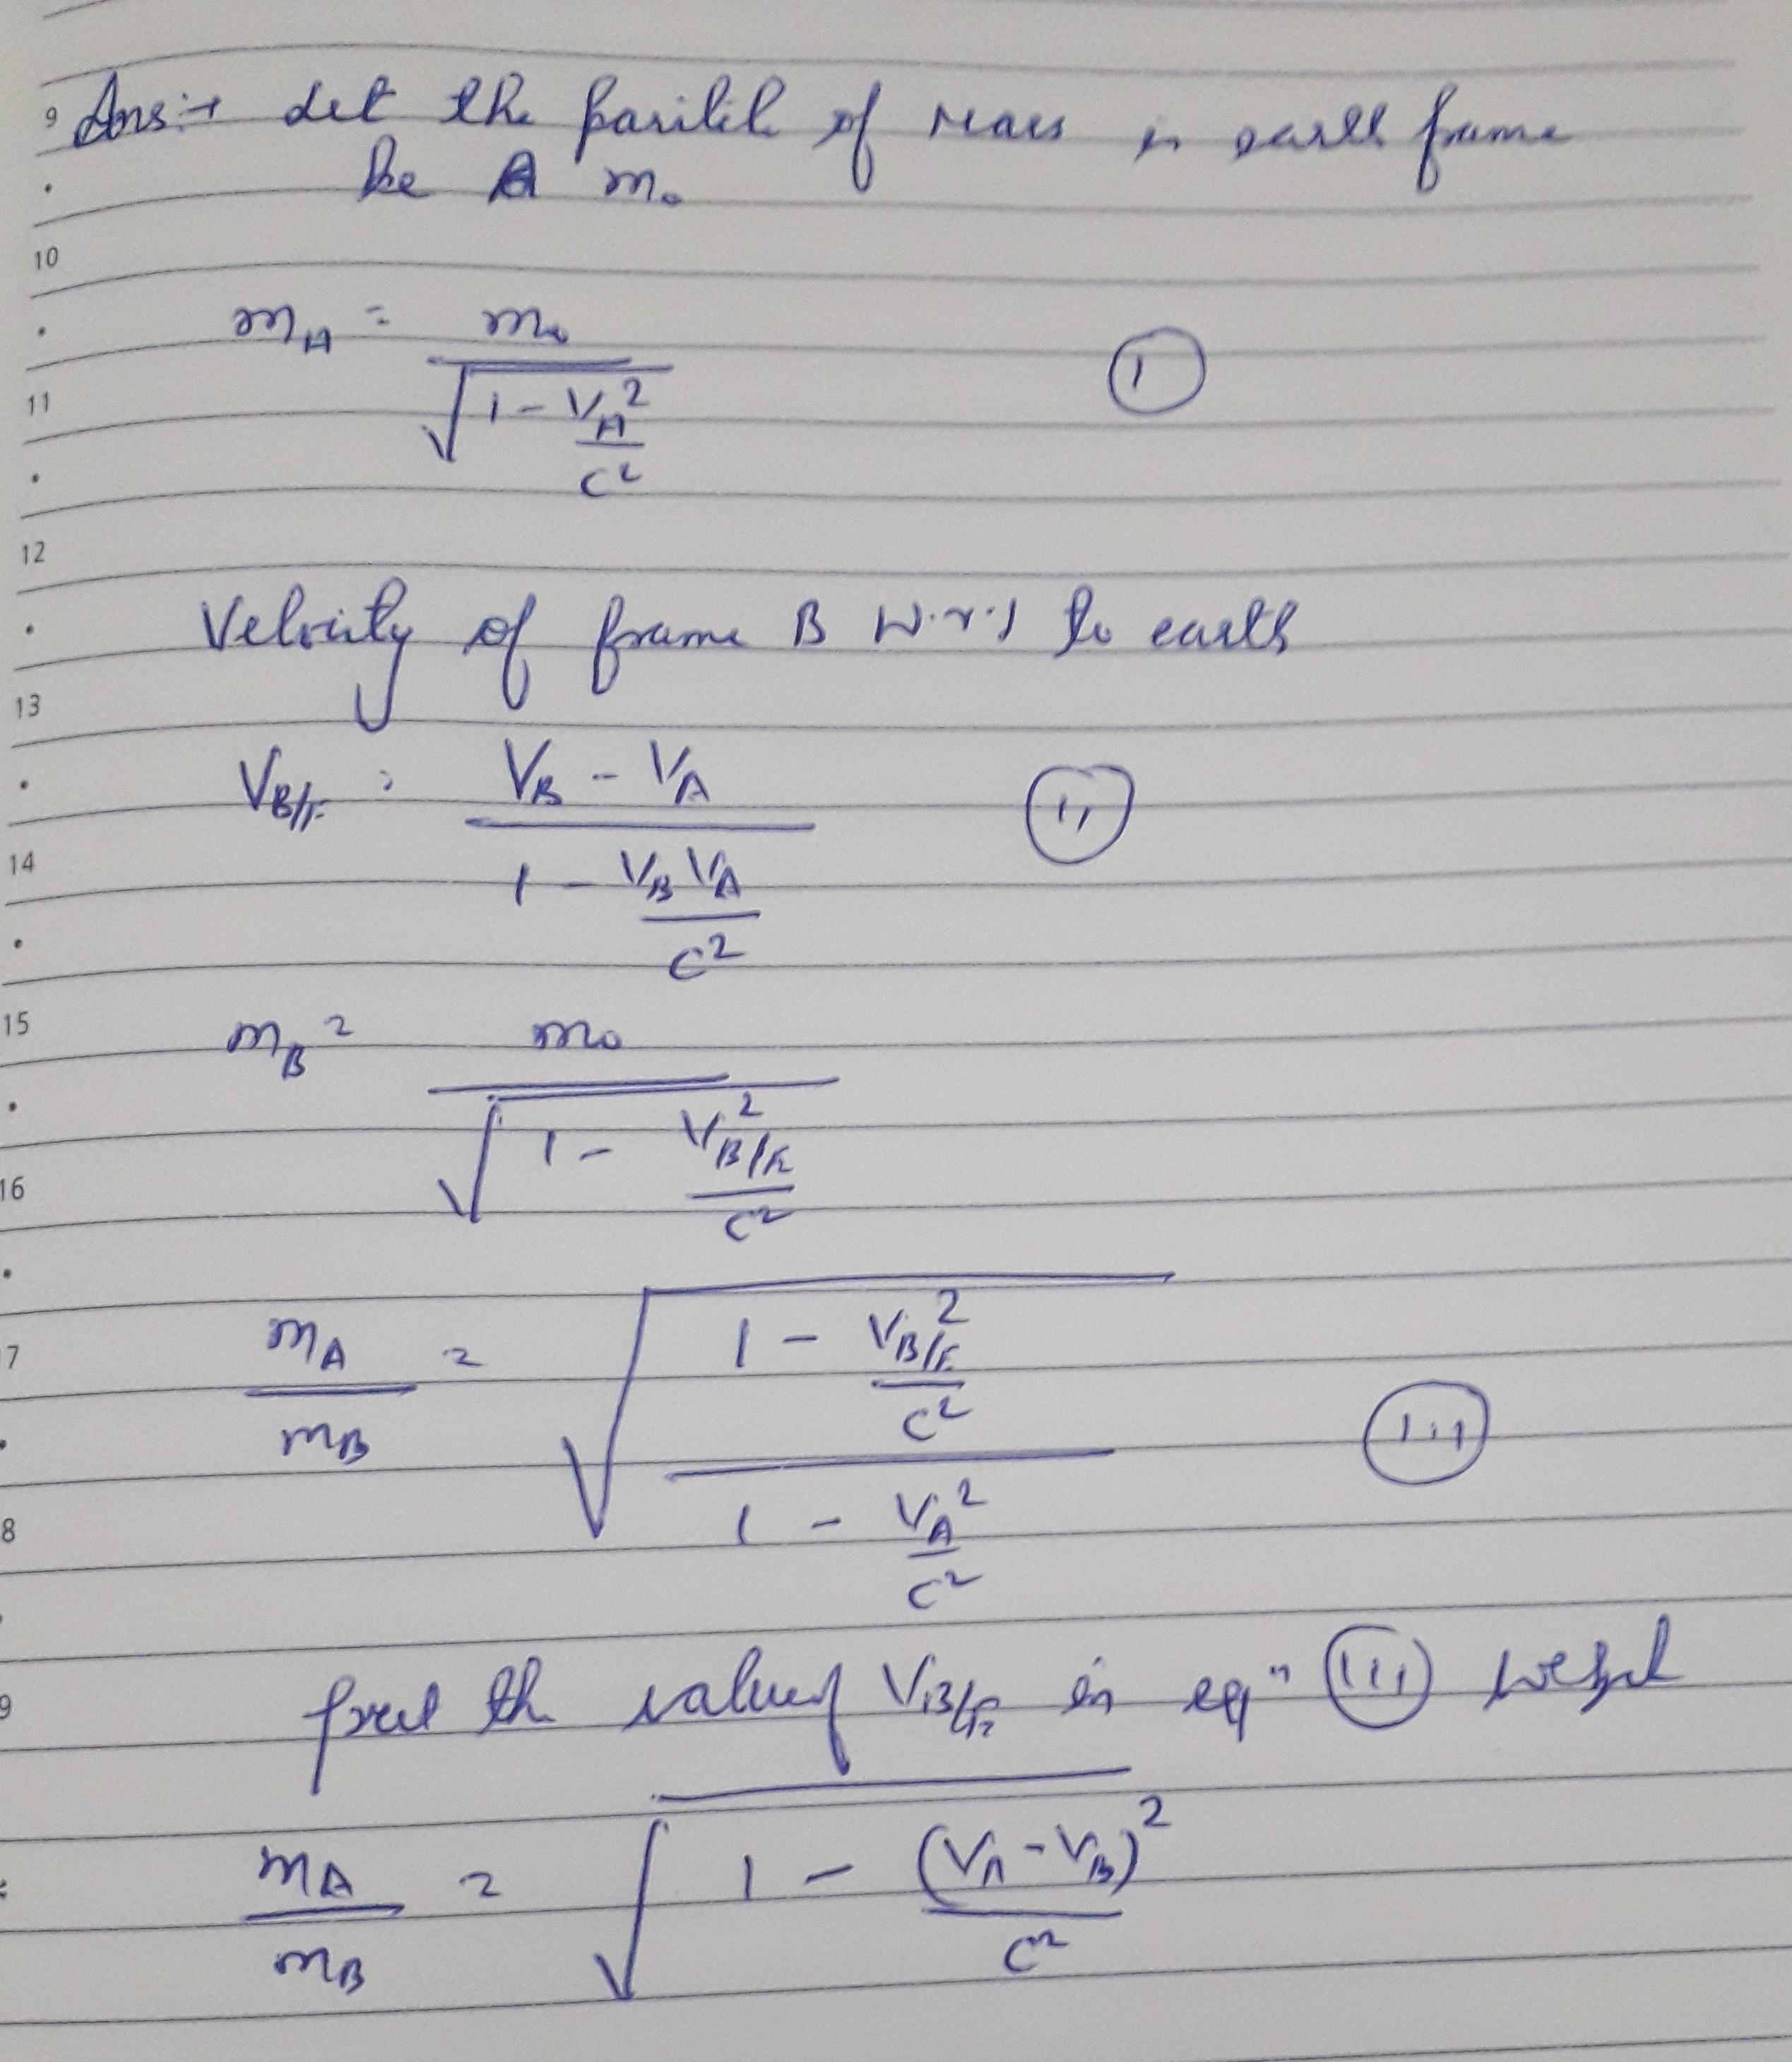 9
Ans:→ Let the paritile of mass in earth frame
be A m₀
10
m_A = m₀ / √(1 - V_A² / c²) (i)
11
12
Velocity of frame B w.r.t to earth
13
V_B/E = (V_B - V_A) / (1 - V_B V_A / c²) (ii)
14
15
m_B = m₀ / √(1 - V²_B/E / c²)
16
m_A / m_B = √((1 - V_B/E² / c²) / (1 - V_A² / c²)) (iii)
7
8
9
put the value of V_B/E in eqⁿ (iii) we get
m_A / m_B = √(1 - (V_A - V_B)² / c²)